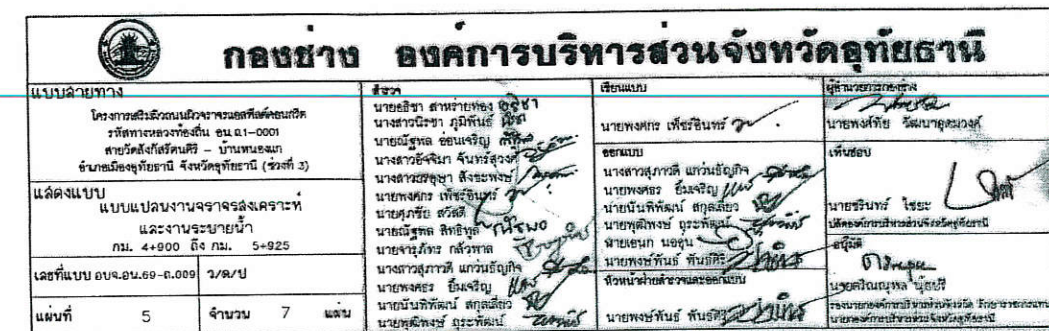 กองช่าง องค์การบริหารส่วนจังหวัดอุทัยธานี
แบบสายทาง
โครงการเสริมผิวถนนผิวจราจรแอสฟัลต์คอนกรีต
รหัสทางหลวงท้องถิ่น อน.ถ.1-0001
สายวัดสังกัสรัตนคีรี - บ้านหนองแก
อำเภอเมืองอุทัยธานี จังหวัดอุทัยธานี (ช่วงที่ 3)
แสดงแบบ
แบบแปลนงานจราจรสงเคราะห์
และงานระบายน้ำ
กม. 4+900 ถึง กม. 5+925
เลขที่แบบ อบจ.อน.69-ถ.009 ว/ด/ป
แผ่นที่ 5 จำนวน 7 แผ่น
สำรวจ
นายอธิชา สาหร่ายทอง
นางสาวนิรชา ภูมิพันธ์
นายณัฐพล อ่อนเจริญ
นางสาวอัจจิมา จันทร์สุวงศ์
นางสาวอรอุษา สังขะพงษ์
นายพงศกร เพ็ชร์อินทร์
นายศุภชัย สวัสดี
นายณัฐพล สิทธิพูล
นายจารุภัทร กล้วพาล
นางสาวสุภาวดี แกวนธัญกิจ
นายพงศธร ยิ้มเจริญ
นายนันทิพัฒน์ สกุลเสียว
นายพุฒิพงษ์ ถูระพัฒน์
เขียนแบบ
นายพงศกร เพ็ชร์อินทร์
ออกแบบ
นางสาวสุภาวดี แกวนธัญกิจ
นายพงศธร ยิ้มเจริญ
นายนันทิพัฒน์ สกุลเสียว
นายพุฒิพงษ์ ถูระพัฒน์
นายเอนก นอคุน
นายพงษ์พันธ์ พันธ์ศิริ
หัวหน้าฝ่ายสำรวจและออกแบบ
นายพงษ์พันธ์ พันธ์ศิริ
ผู้อำนวยการกองช่าง
นายพงศ์ทัย วัฒนาอุดมวงศ์
เห็นชอบ
นายชรินทร์ ไชยะ
ปลัดองค์การบริหารส่วนจังหวัดอุทัยธานี
อนุมัติ
รองนายกองค์การบริหารส่วนจังหวัด รักษาราชการแทน
นายกองค์การบริหารส่วนจังหวัดอุทัยธานี